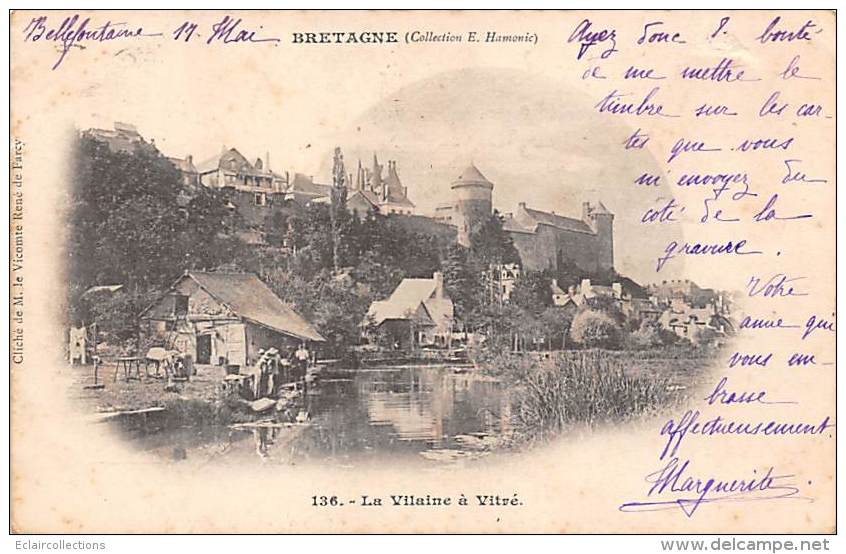 Bellefontaine 17 Mai
BRETAGNE (Collection E. Hamonic)
Ayez donc l. bonté
de me mettre le
timbre sur les car-
tes que vous
m'envoyez du
côté de la
gravure.
Votre
amie qui
vous em-
brasse
affectueusement.
Marguerite
Cliché de M. le Vicomte René de Farcy
136. - La Vilaine à Vitré.
©Eclaircollections
www.delcampe.net